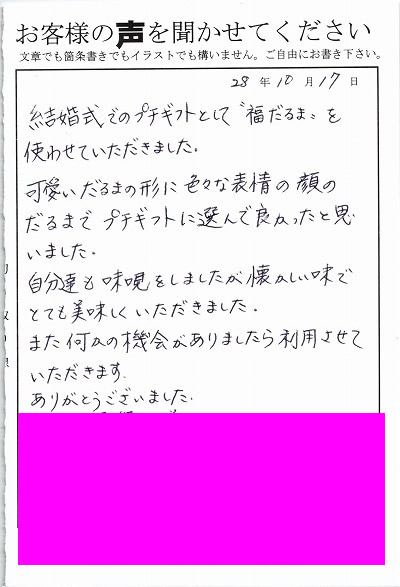 お客様の声を聞かせてください
文章でも箇条書きでもイラストでも構いません。ご自由にお書き下さい。
28年10月17日
結婚式でのプチギフトとして"福だるま"を
使わせていただきました。
可愛いだるまの形に色々な表情の顔の
だるまでプチギフトに選んで良かったと思
いました。
自分達も味見をしましたが懐かしい味で
とても美味しくいただきました。
また何かの機会がありましたら利用させて
いただきます。
ありがとうございました。